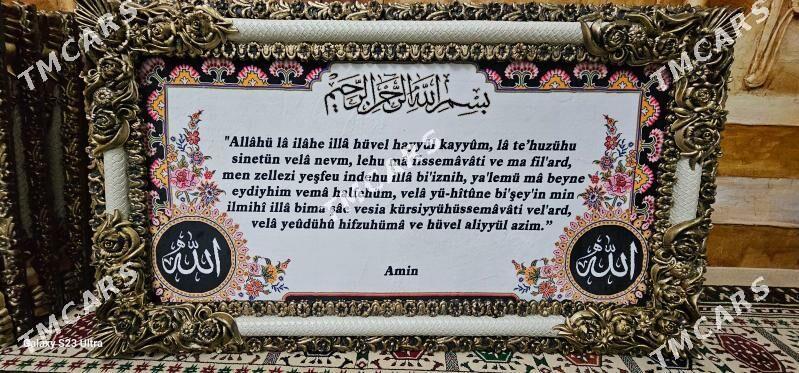 بسم الله الرحمن الرحيم
"Allâhü lâ ilâhe illâ hüvel hayyül kayyûm, lâ te’huzühu
sinetün velâ nevm, lehu mâ fissemâvâti ve ma fil'ard,
men zellezi yeşfeu indehu illâ bi'iznih, ya'lemü mâ beyne
eydiyhim vemâ halfehüm, velâ yü-hîtûne bi'şey'in min
ilmihî illâ bima şâe vesia kürsiyyühüssemâvâti vel'ard,
velâ yeûdühû hifzuhümâ ve hüvel aliyyül azim.”
Amin
الله
الله
Galaxy S23 Ultra
TMCARS
TMCARS
TMCARS
TMCARS
TMCARS
TMCARS
TMCARS
TMCARS
TMCARS